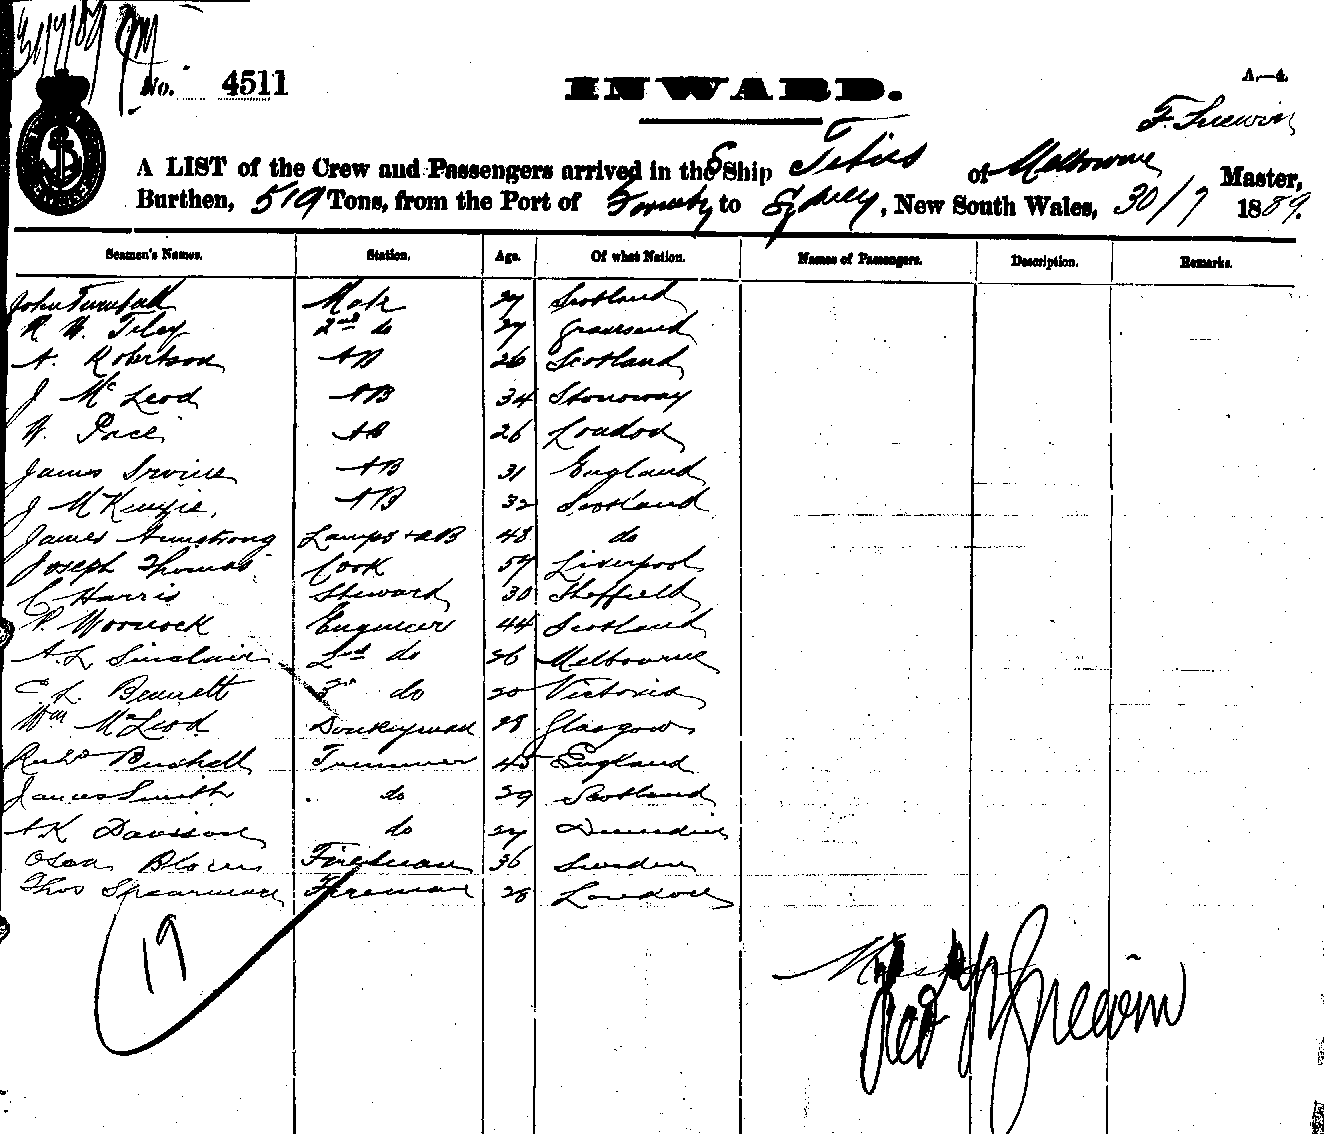 31/7/89
No. 4511
INWARD.
A.—4.
A LIST of the Crew and Passengers arrived in the S Ship Tetius of Melbourne F. Trewin Master,
Burthen, 519 Tons, from the Port of to Sydney, New South Wales, 30/7 1889.
Seamen's Names. Station. Age. Of what Nation. Names of Passengers. Description. Remarks.
John Turnbull Mate 27 Scotland
R. W. Tiley 2nd do 27 Gravesend
A. Robertson AB 26 Scotland
J McLeod AB 34 Stornoway
W. Pace AB 26 London
James Irvine AB 31 England
J McKenzie. AB 32 Scotland
James Armstrong Lamps + AB 48 do
Joseph Thomas Cook 57 Liverpool
C Harris Steward 30 Sheffield
P. Wornock Engineer 44 Scotland
A. L Sinclair 2nd do 26 Melbourne
C L. Bennett 3rd do 20 Victoria
Wm McLeod Donkeyman 28 Glasgow
Richd Bushell Trimmer 45 England
James Smith do 29 Scotland
A K Davison do 27 Dunedin
Oscar Fireman 36 Sweden
Thos Spearman Fireman 28 London
19
Fred Trewin